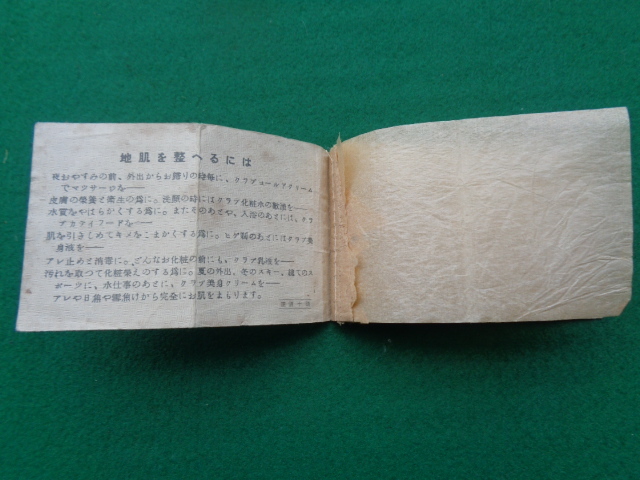 地肌を整へるには
夜おやすみの前、外出からお歸りの時毎に、クラブコールドクリーム
でマツサーヂを――
皮膚の榮養と衞生の爲に。洗顏の時にはクラブ化粧水の數滴を――
水質をやはらかくする爲に。またそのあとや、入浴のあとには、クラブ
カライフードを――
肌を引きしめてキメをこまかくする爲に。ヒゲ剃のあとにはクラブ美
身液を――
アレ止めと消毒に。どんなお化粧の前にも、クラブ乳液を――
汚れを取つて化粧映えのする爲に。夏の外出、冬のスキー、總てのス
ポーツに、水仕事のあとに、クラブ美身クリームを――
アレや日焦や雪焦けから完全にお肌をまもります。